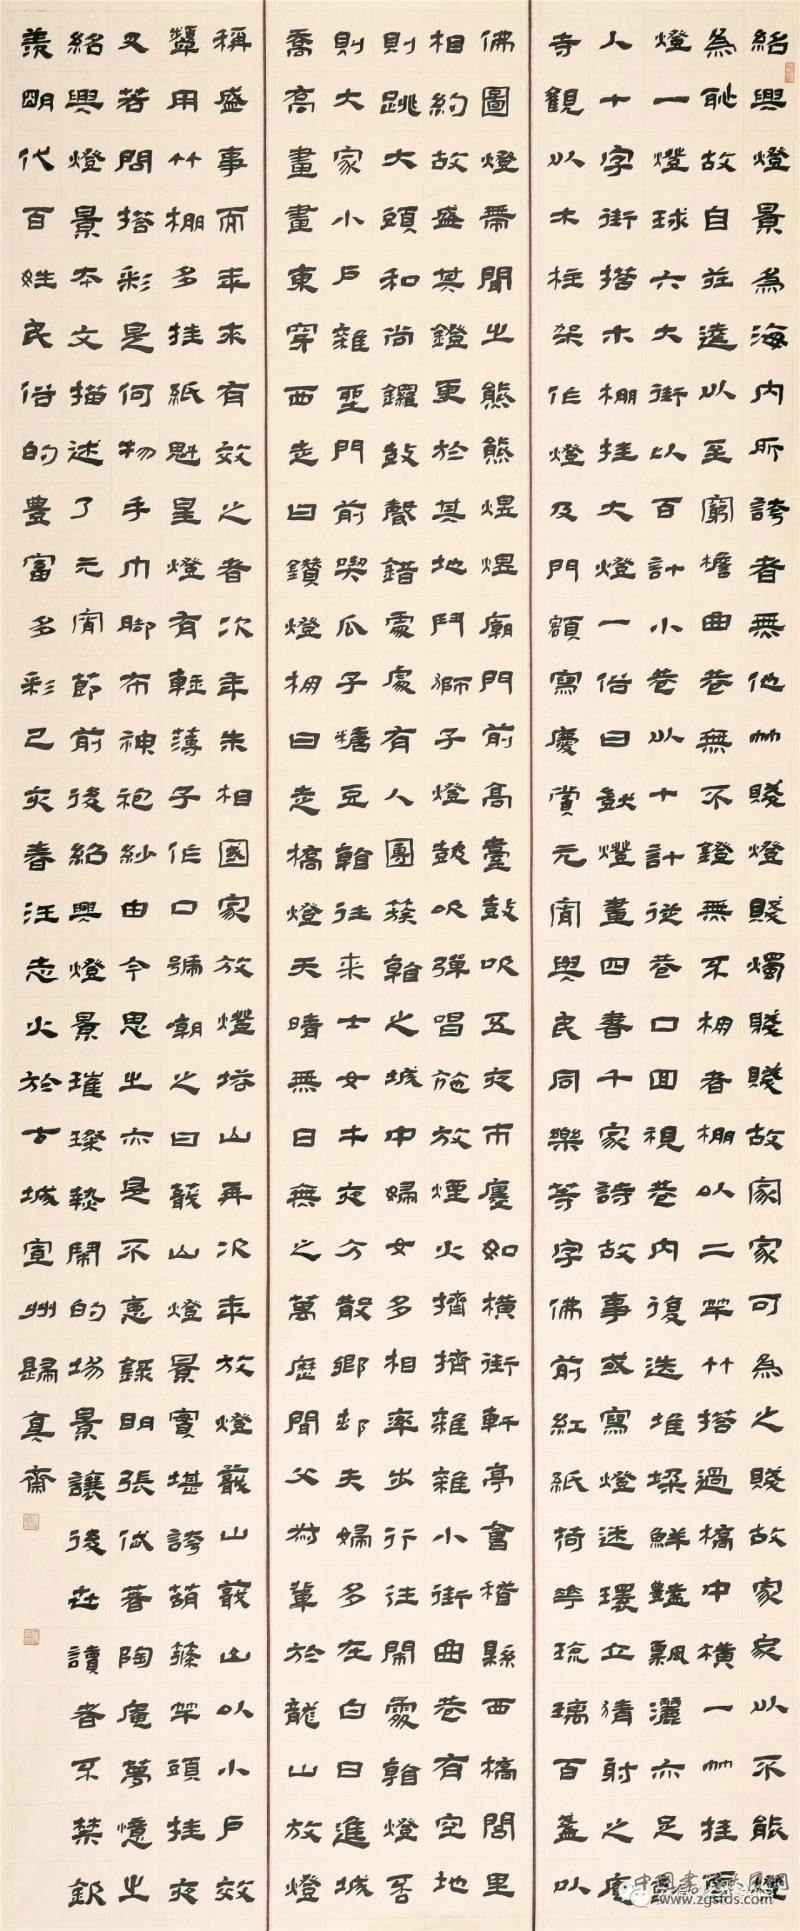 紹興燈景為海內所誇者無他竹賤燈賤燭賤賤故家家可為之賤故家家以不能燈
為恥故自莊逵以至窮檐曲巷無不鐙無不棚者棚以二竿竹搭過橋中橫一竹挂雪
燈一燈球六大街以百計小巷以十計從巷口回視巷內復迭堆垛鮮豔飄灑亦足動
人十字街搭木棚挂大燈一俗曰呆燈畫四書千家詩故事或寫燈迷環立猜射之庵
寺觀以木柱架作燈及門額寫慶賞元宵與民同樂等字佛前紅紙荷花琉璃百盞以
佛圖燈帶間之熊熊煜煜廟門前高臺鼓吹五夜市廛如橫街軒亭會稽縣西橋閭里
相約故盛其鐙更於其地鬥獅子燈鼓吹彈唱施放煙火擠擠雜雜小街曲巷有空地
則跳大頭和尚鑼鼓聲錯處處有人團簇看之城中婦女多相率步行往鬧處看燈否
則大家小戶雜坐門前喫瓜子糖豆看往來士女午夜方散鄉村夫婦多在白日進城
喬喬畫畫東穿西走曰鑽燈棚曰走橋燈天晴無日無之萬曆間父叔輩於龍山放燈
稱盛事而年來有效之者次年朱相國家放燈塔山再次年放燈蕺山蕺山以小戶效
顰用竹棚多挂紙魁星燈有輕薄子作口號嘲之曰蕺山燈景實堪誇葫篠竿頭挂夜
叉若問搭彩是何物手巾腳布神袍紗由今思之亦是不惡錄明張岱著陶庵夢憶之
紹興燈景本文描述了元宵節前後紹興燈景璀璨熱鬧的場景讓後世讀者不禁欽
羨明代百姓民俗的豐富多彩己亥春汪志火於古城宣州歸真齋
www.zgsfds.com